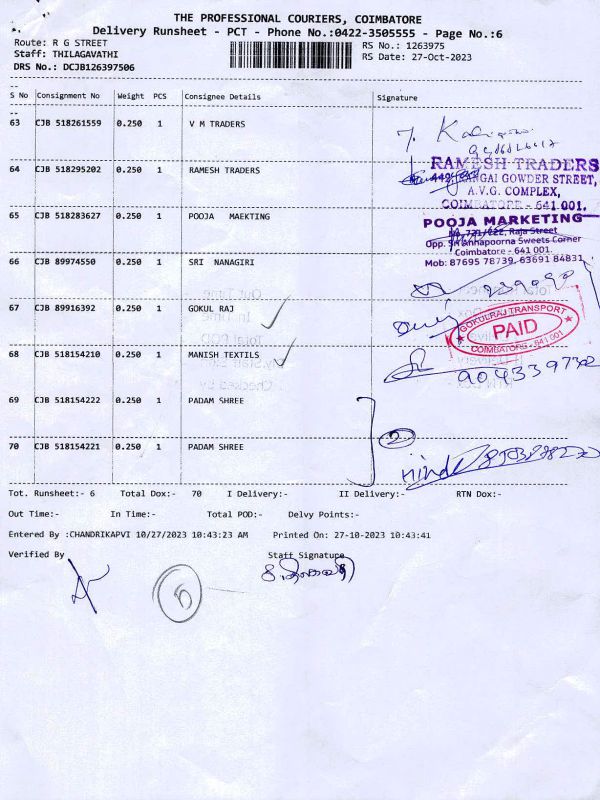 THE PROFESSIONAL COURIERS, COIMBATORE
Delivery Runsheet - PCT - Phone No.:0422-3505555 - Page No.:6
Route: R G STREET
RS No.: 1263975
Staff: THILAGAVATHI
RS Date: 27-Oct-2023
DRS No.: DCJB126397506
S No Consignment No Weight PCS Consignee Details Signature
63 CJB 518261559 0.250 1 V M TRADERS
64 CJB 518295202 0.250 1 RAMESH TRADERS
RAMESH TRADERS
GOWDER STREET,
A.V.G. COMPLEX,
COIMBATORE - 641 001.
65 CJB 518283627 0.250 1 POOJA MAEKTING
POOJA MARKETING
Raja Street
Opp. Sri Annapoorna Sweets Corner
Coimbatore - 641 001.
Mob: 87695 78739, 63691 84831
66 CJB 89974550 0.250 1 SRI NANAGIRI
67 CJB 89916392 1 0.250 GOKUL RAJ
GOKULRAJ TRANSPORT
PAID
COIMBATORE - 641 001
68 CJB 518154210 0.250 1 MANISH TEXTILS
69 CJB 518154222 0.250 1 PADAM SHREE
2
70 CJB 518154221 0.250 1 PADAM SHREE
Tot. Runsheet:- 6 Total Dox:- 70 I Delivery:- II Delivery:- RTN Dox:-
Out Time:- In Time:- Total POD:- Delvy Points:-
Entered By :CHANDRIKAPVI 10/27/2023 10:43:23 AM Printed On: 27-10-2023 10:43:41
Verified By Staff Signature
5